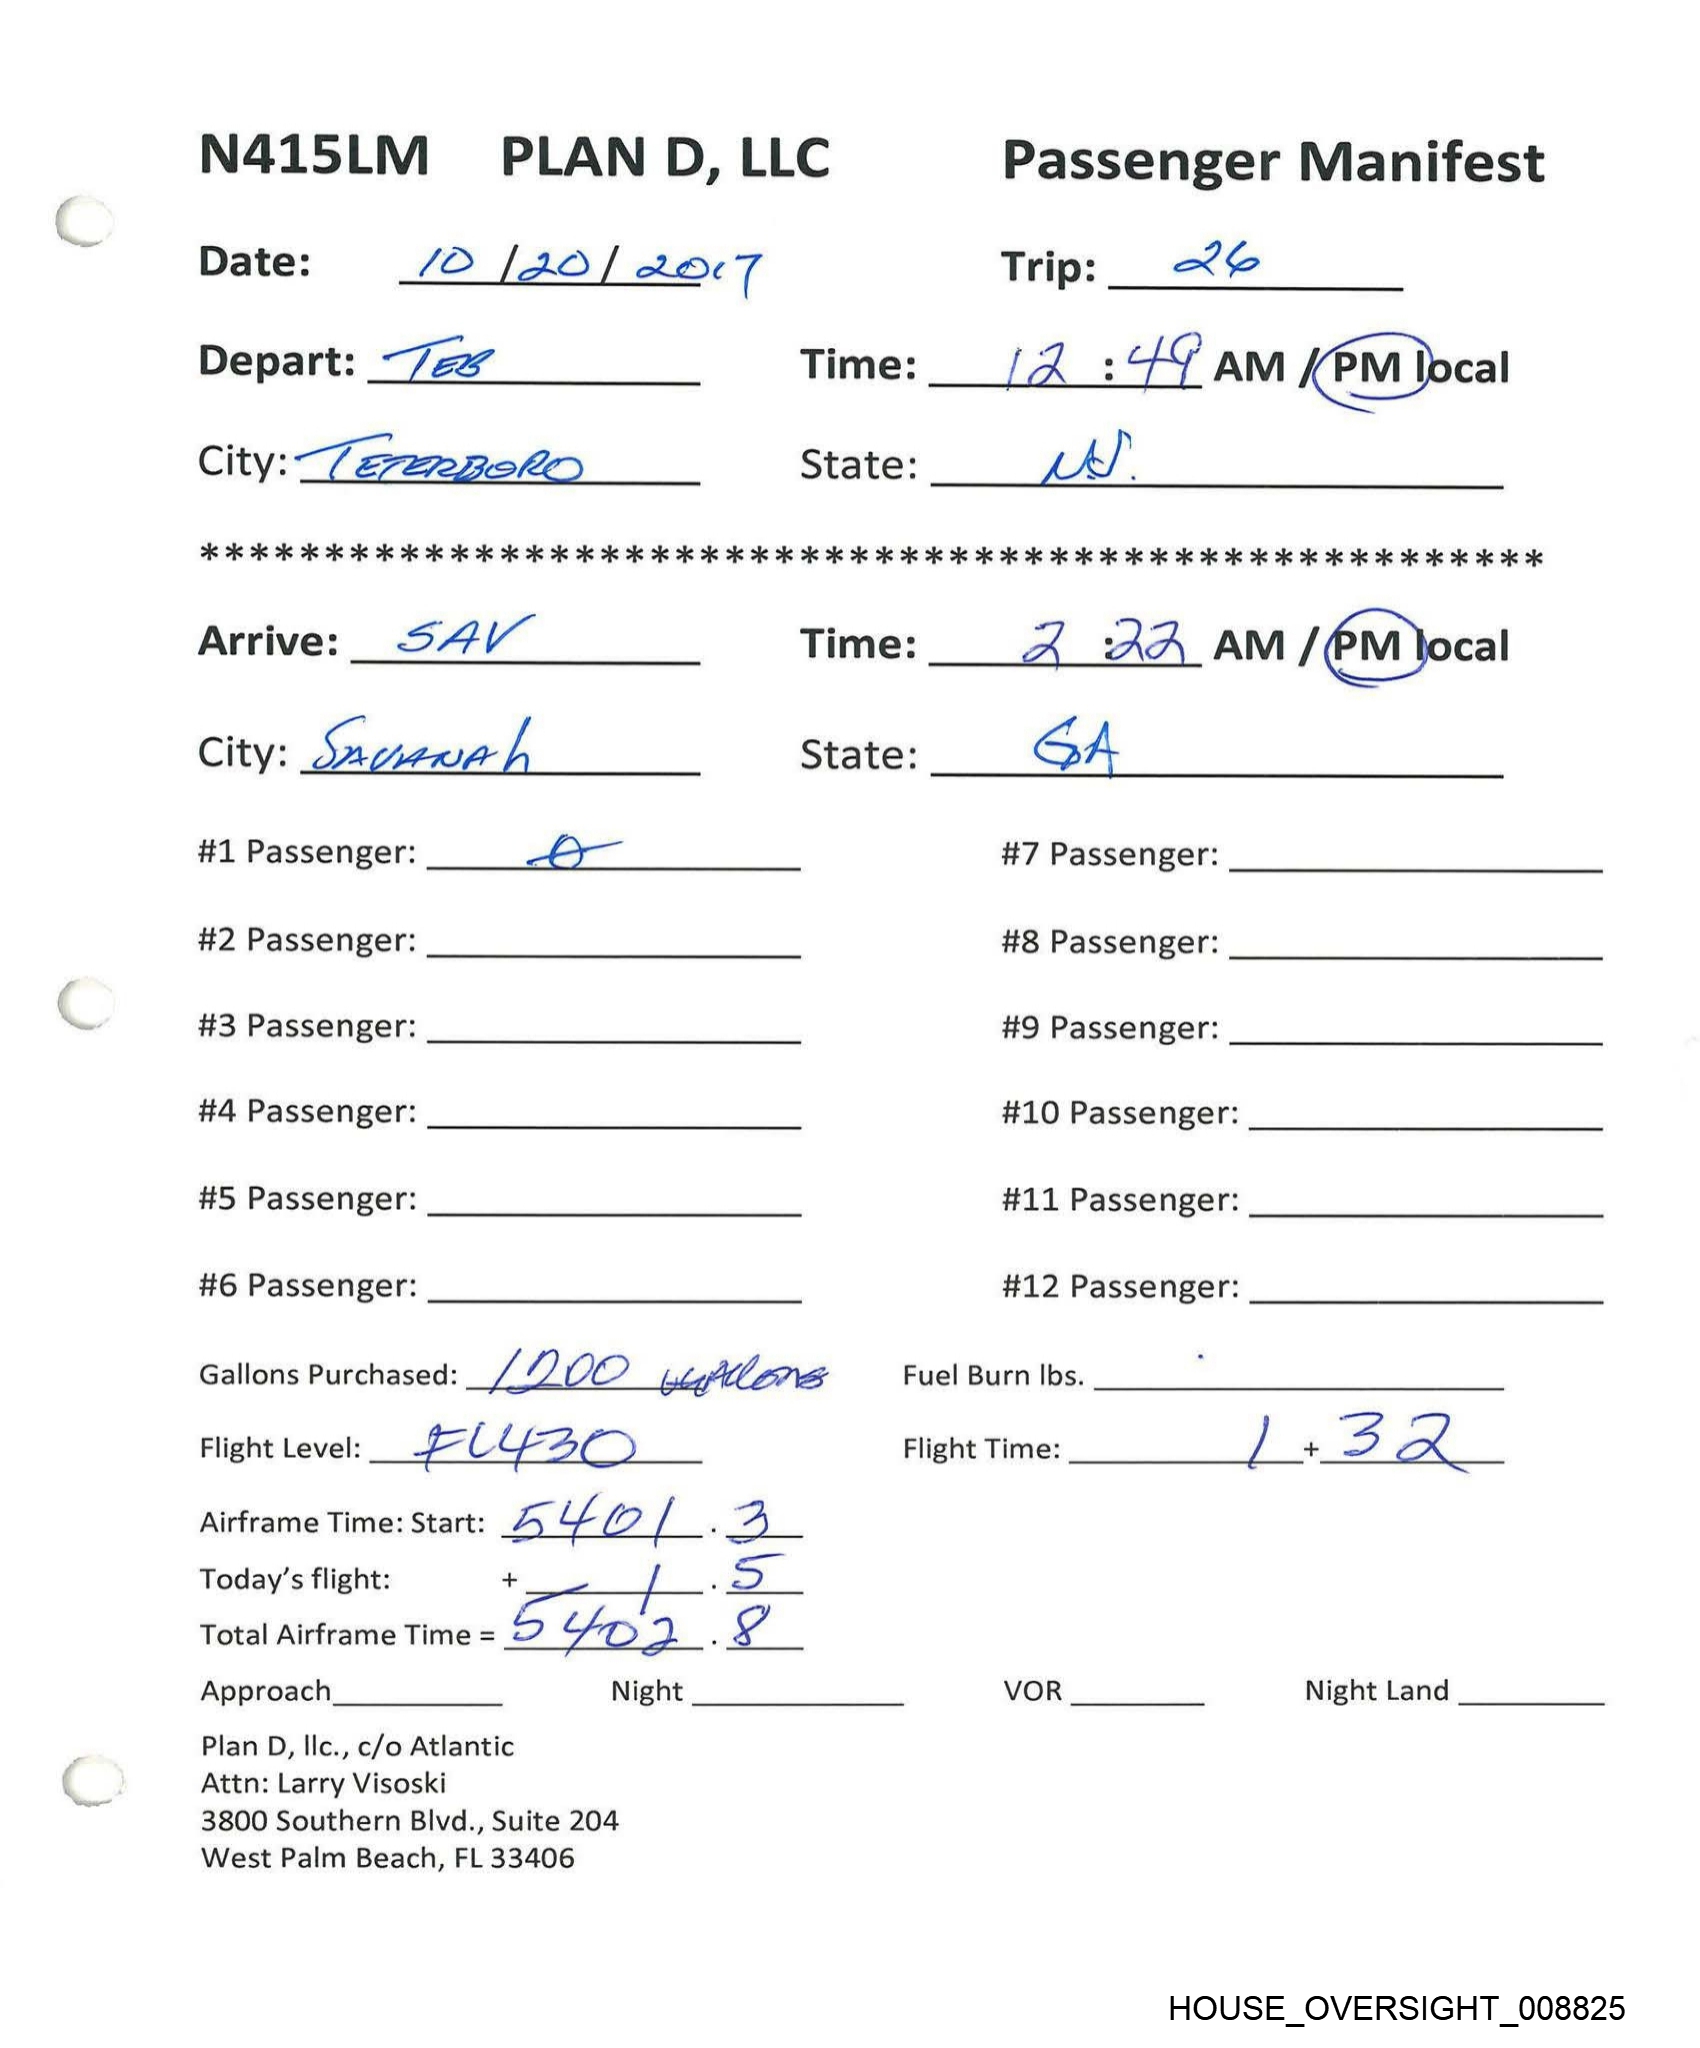 N415LM PLAN D, LLC Passenger Manifest
Date: 10/20/2017 Trip: 26
Depart: TEB Time: 12:49 AM / PM local
City: TETERBORO State: NJ.
******************************************************
Arrive: SAV Time: 2:22 AM / PM local
City: SAVANAh State: GA
#1 Passenger: 0 #7 Passenger:
#2 Passenger: #8 Passenger:
#3 Passenger: #9 Passenger:
#4 Passenger: #10 Passenger:
#5 Passenger: #11 Passenger:
#6 Passenger: #12 Passenger:
Gallons Purchased: 1200 GAllons Fuel Burn lbs.
Flight Level: FL430 Flight Time: 1 + 32
Airframe Time: Start: 5401 . 3
Today's flight: + 1 . 5
Total Airframe Time = 5402 . 8
Approach Night VOR Night Land
Plan D, llc., c/o Atlantic
Attn: Larry Visoski
3800 Southern Blvd., Suite 204
West Palm Beach, FL 33406
HOUSE_OVERSIGHT_008825